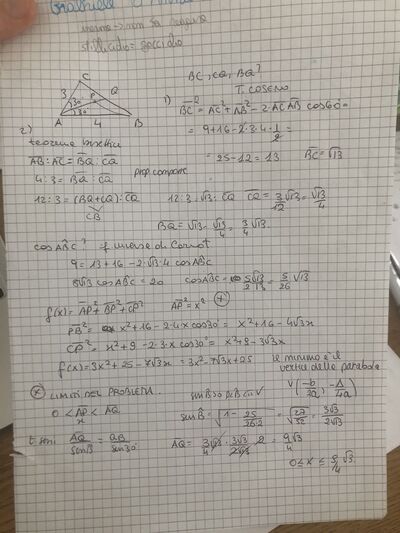 stillicidio = gocciolio
C
3
P
Q
30°
30°
A
4
B
BC, CQ, BQ?
T. COSENO
1) BC² = AC² + AB² - 2·AC·AB cos60° =
= 9+16 - 2·3·4·1/2 =
= 25-12 = 13   BC = √13
2)
teorema bisettrice
AB : AC = BQ : CQ
4 : 3 = BQ : CQ   prop. comporre
12 : 3 = (BQ+CQ) : CQ   12 : 3 = √13 : CQ   CQ = 3/12 √13 = √13/4
CB
BQ = √13 - √13/4 = 3/4 √13
cos ABC ? f inversa di Carnot
9 = 13+16 - 2·√13·4 cos ABC
8√13 cos ABC = 20   cos ABC = 5√13/2·13 = 5/26 √13
f(x) = AP² + BP² + CP²   AP² = x²   (*)
PB² = x² + 16 - 2·4x cos30° = x² + 16 - 4√3x
CP² = x² + 9 - 2·3·x cos30° = x² + 9 - 3√3x
f(x) = 3x² + 25 - 7√3x = 3x² - 7√3x + 25   il minimo è il
vertice della parabola
V(-b/2a; -Δ/4a)
(*) LIMITI DEL PROBLEMA
0 < AP < AQ
x
sin B = √1 - 25/26·2 = √27/52 = 3√3/2√13
t. seni   AQ/sin B = QB/sin30°   AQ = 3/4 √13 · 3√3/2√13 · 2 = 9√3/4
0 ≤ x ≤ 9/4 √3